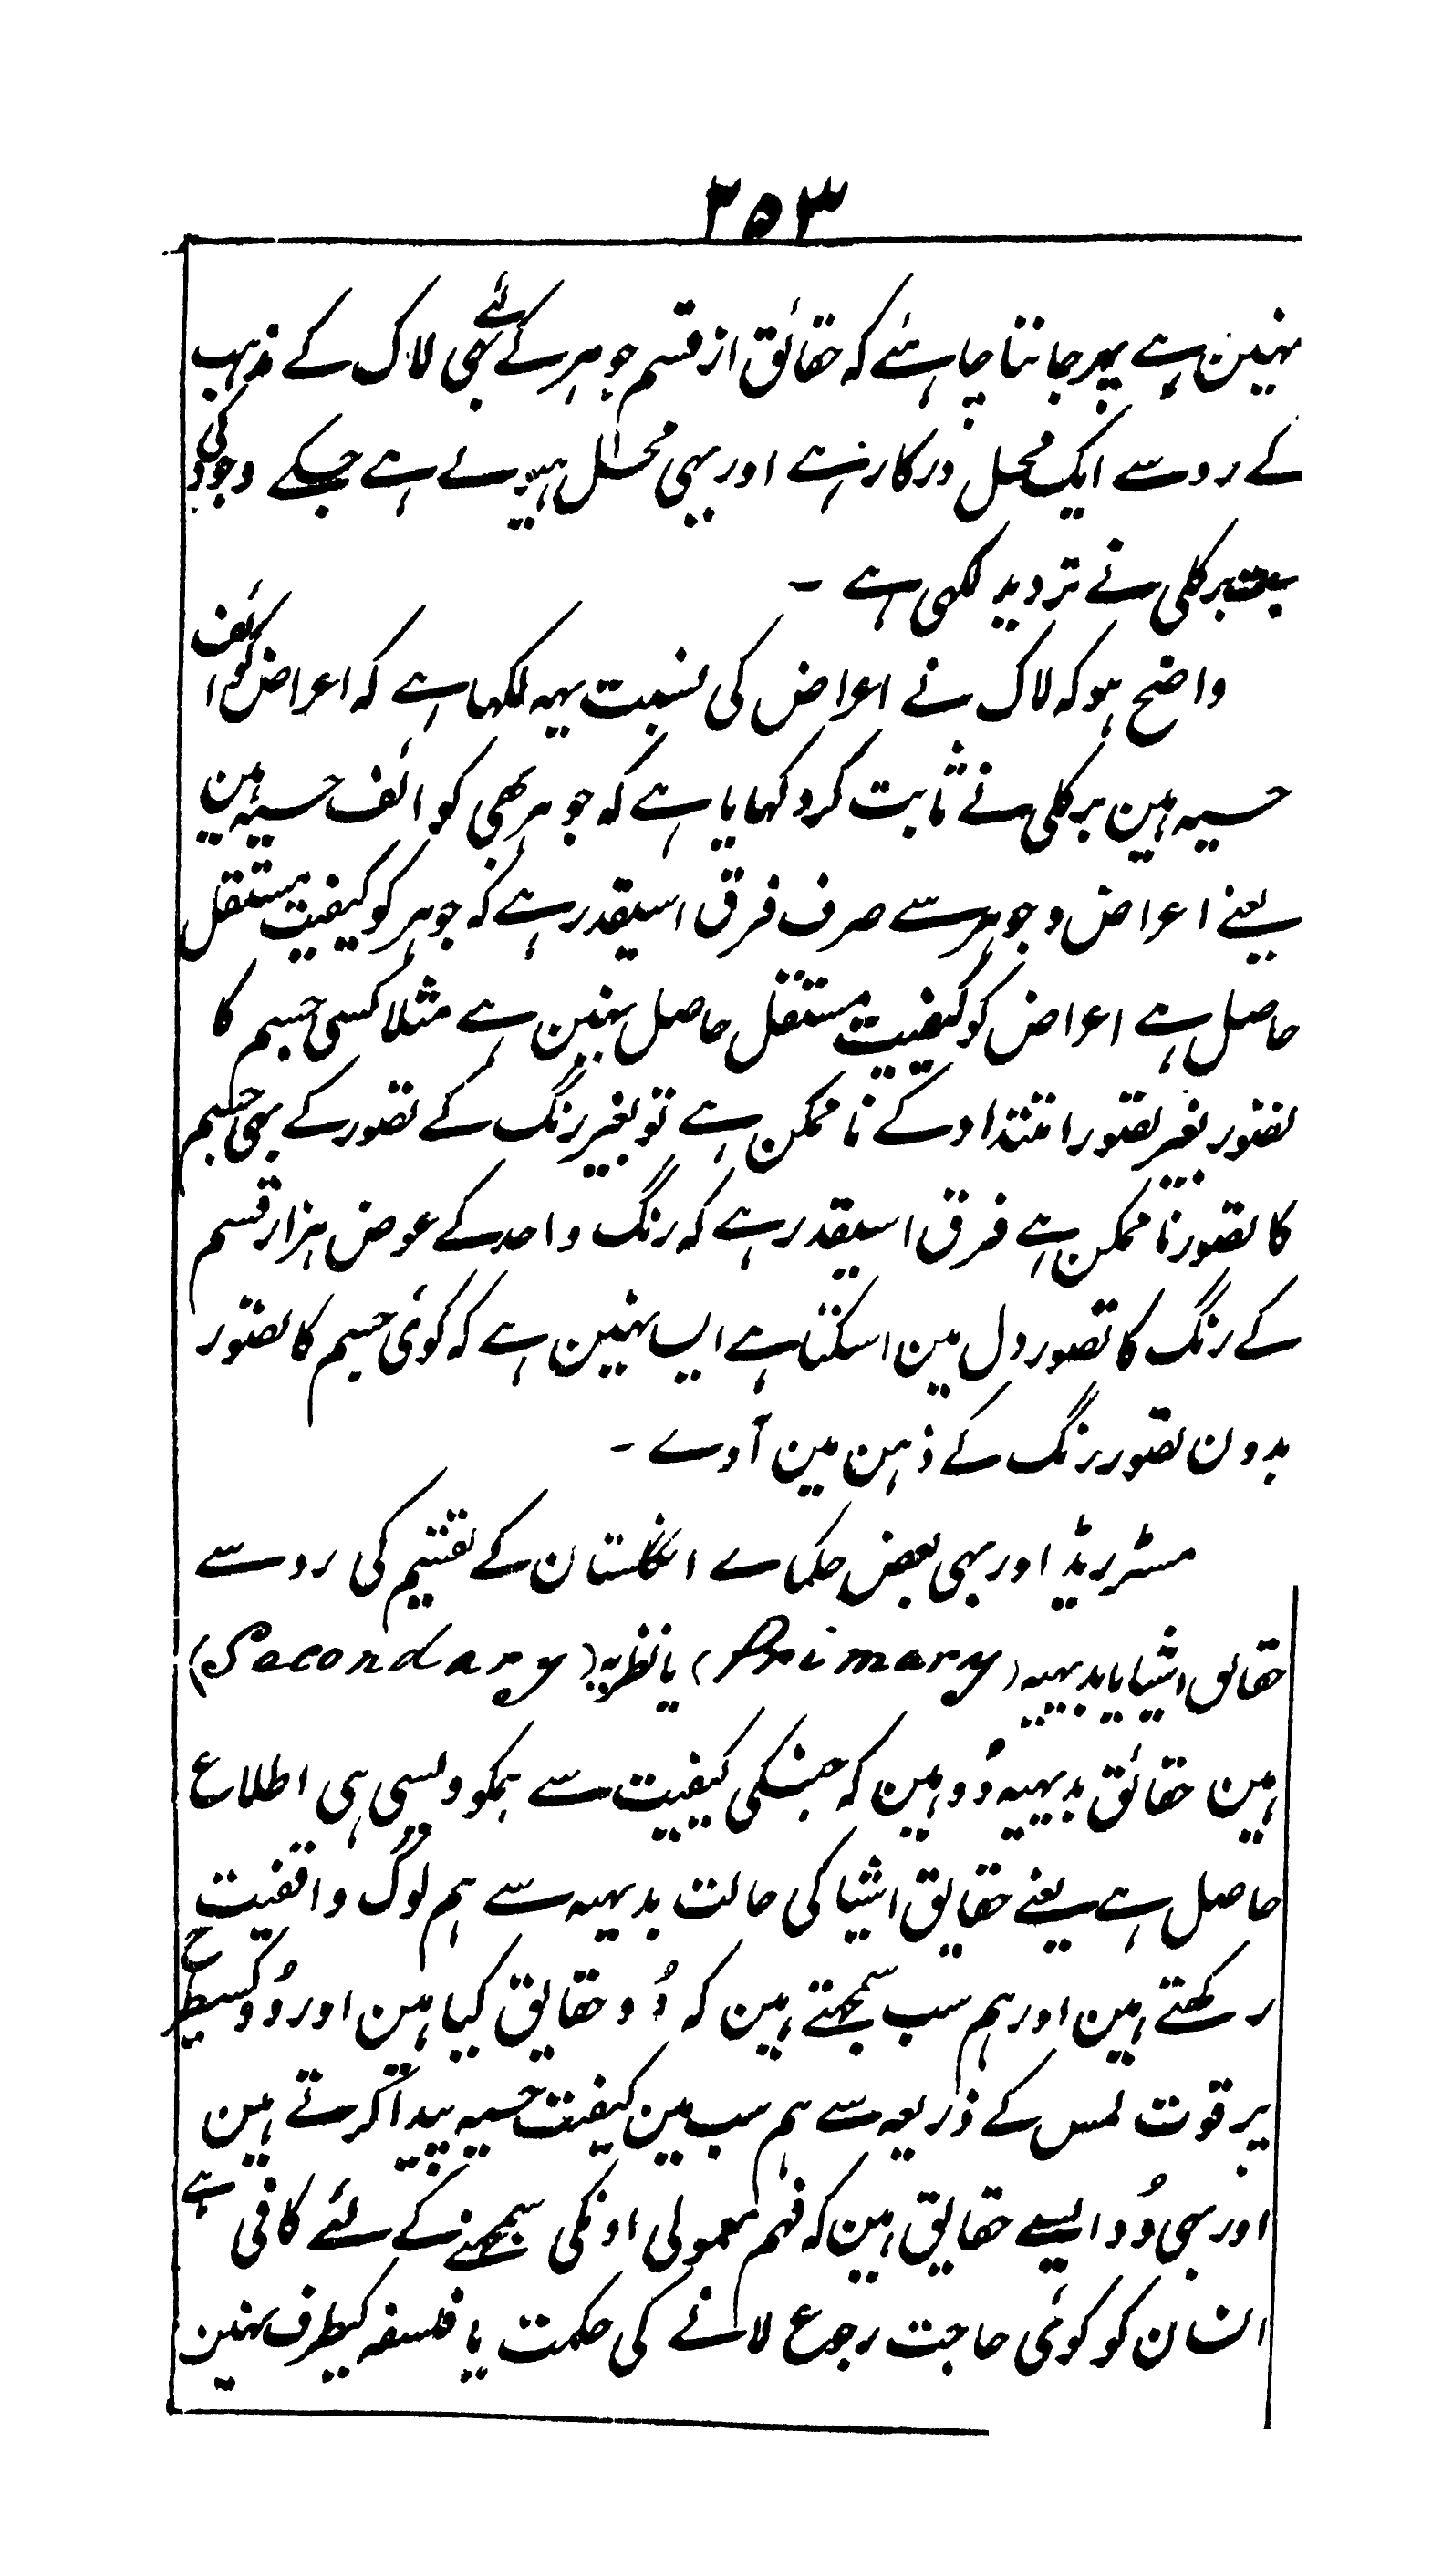 ۲۵۳
نہین ہے پہر جاننا چاہئے کہ حقائق از قسم جوہر کے لئے بھی لاک کے مذہب
کے رو سے ایک محل درکار ہے اور یہی محل ہیولے ہے جسکے وجود کی
برکلی نے تردید لکھی ہے ۔
واضح ہو کہ لاک نے اعراض کی نسبت یہہ لکھا ہے کہ اعراض کوائف
حسیہ ہین برکلی نے ثابت کر دکھایا ہے کہ جوہر بھی کوائف حسیہ ہین
یعنے اعراض و جوہر سے صرف فرق اسیقدر ہے کہ جوہر کو کیفیت مستقل
حاصل ہے اعراض کو کیفیت مستقل حاصل نہین ہے مثلا کسی جسم کا
تصور بغیر تصور امتداد کے ناممکن ہے تو بغیر رنگ کے تصور کے بہی جسم
کا تصور ناممکن ہے فرق اسیقدر ہے کہ رنگ واحد کے عوض ہزار قسم
کے رنگ کا تصور دل مین اسکتا ہے ایسا نہین ہے کہ کوئی جسم کا تصور
بدون تصور رنگ کے ذہن مین آوے ۔
مسٹر ریڈ اور بہی بعض حکماے انگلستان کے تقسیم کی رو سے
حقایق اشیا یا بدیہیہ (Primary) یا نظریہ (Secondary)
ہین حقائق بدیہیہ وُو ہین کہ جنکی کیفیت سے ہمکو ویسی ہی اطلاع
حاصل ہے یعنے حقایق اشیا کی حالت بدیہیہ سے ہم لوگ واقفیت
رکھتے ہین اور ہم سب سمجھتے ہین کہ وُو حقایق کیا ہین اور وُو کسیطرح
پر قوت لمس کے ذریعہ سے ہم سب مین کیفیت حسیہ پیدا کرتے ہین
اور یہی وُو ایسے حقایق ہین کہ فہم معمولی اونکی سمجھنے کے لئے کافی ہے
انسان کو کوئی حاجت رجوع لانے کی حکمت یا فلسفہ کیطرف نہین